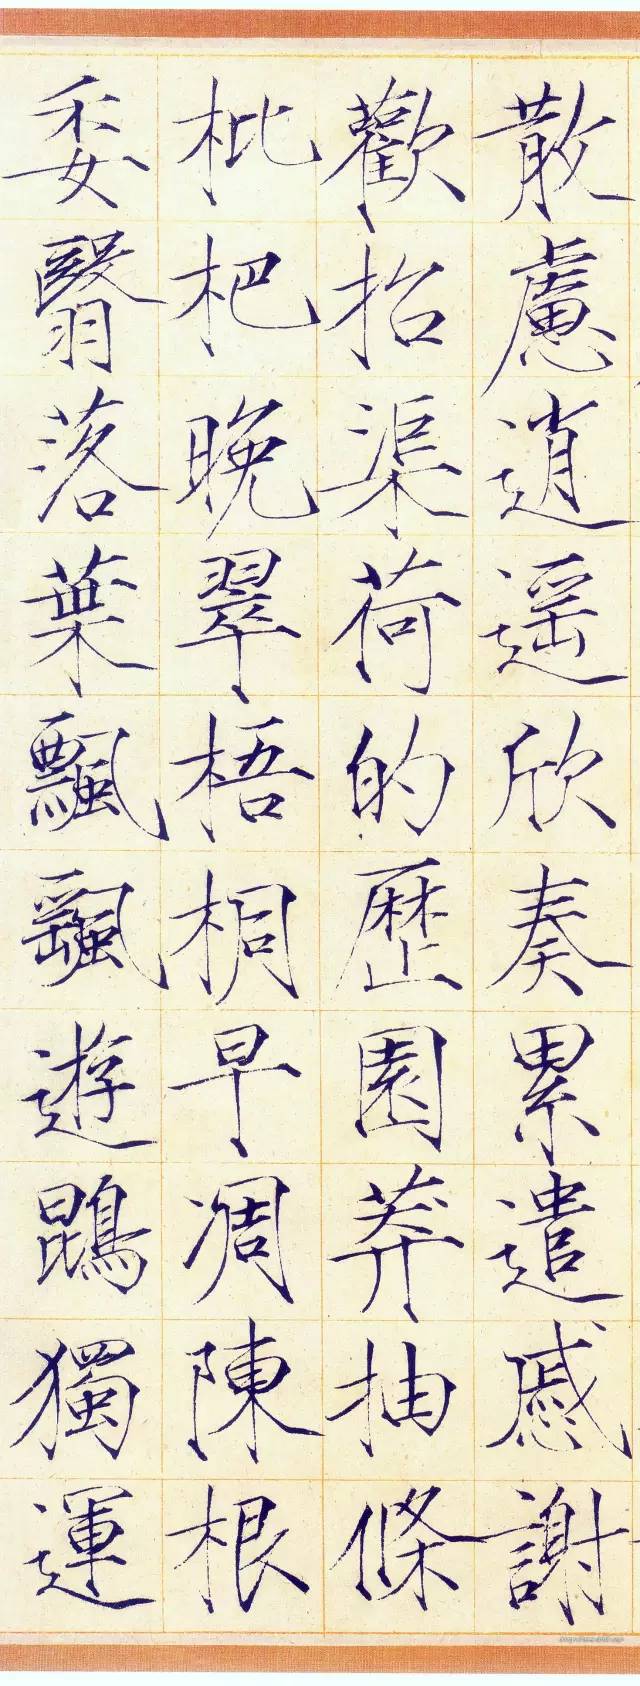 散慮逍遥欣奏累遣慼謝
歡招渠荷的歷園莽抽條
枇杷晚翠梧桐早凋陳根
委翳落葉飄颻遊鵾獨運